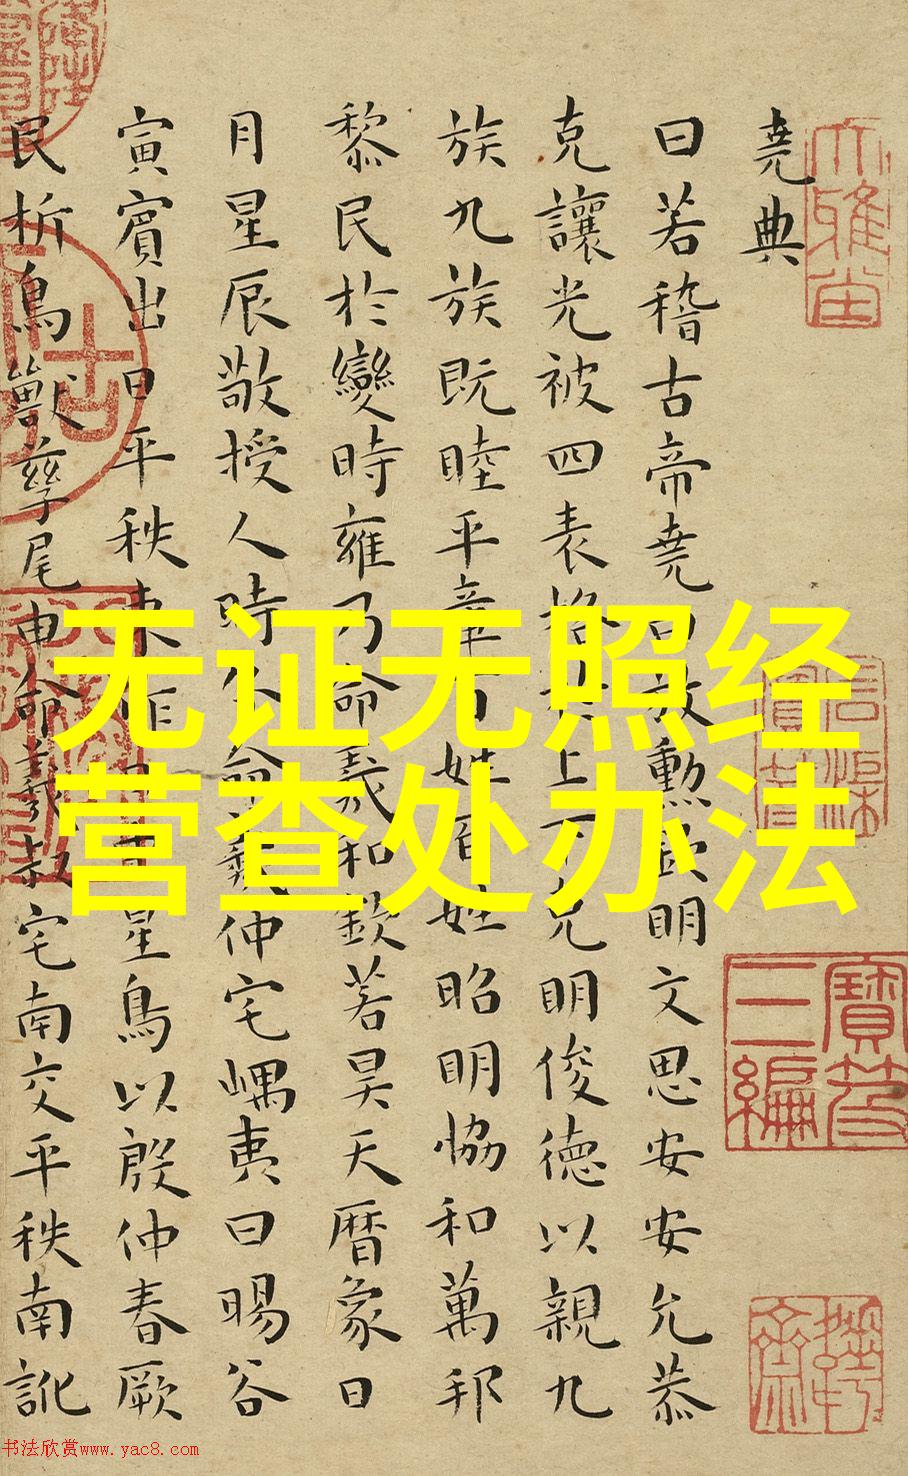 堯典
曰若稽古帝堯曰放勳欽明文思安安允恭
克讓光被四表格于上下克明俊德以親九
族九族既睦平章百姓百姓昭明恊和萬邦
黎民於變時雍乃命羲和欽若昊天曆象日
月星辰敬授人時分命羲仲宅嵎夷曰暘谷
寅賓出日平秩東作日中星鳥以殷仲春厥
民析鳥獸孳尾申命羲叔宅南交平秩南訛
无证无照经
营查处办法
大雅堂
寶笈
三編
书法欣赏www.yac8.com